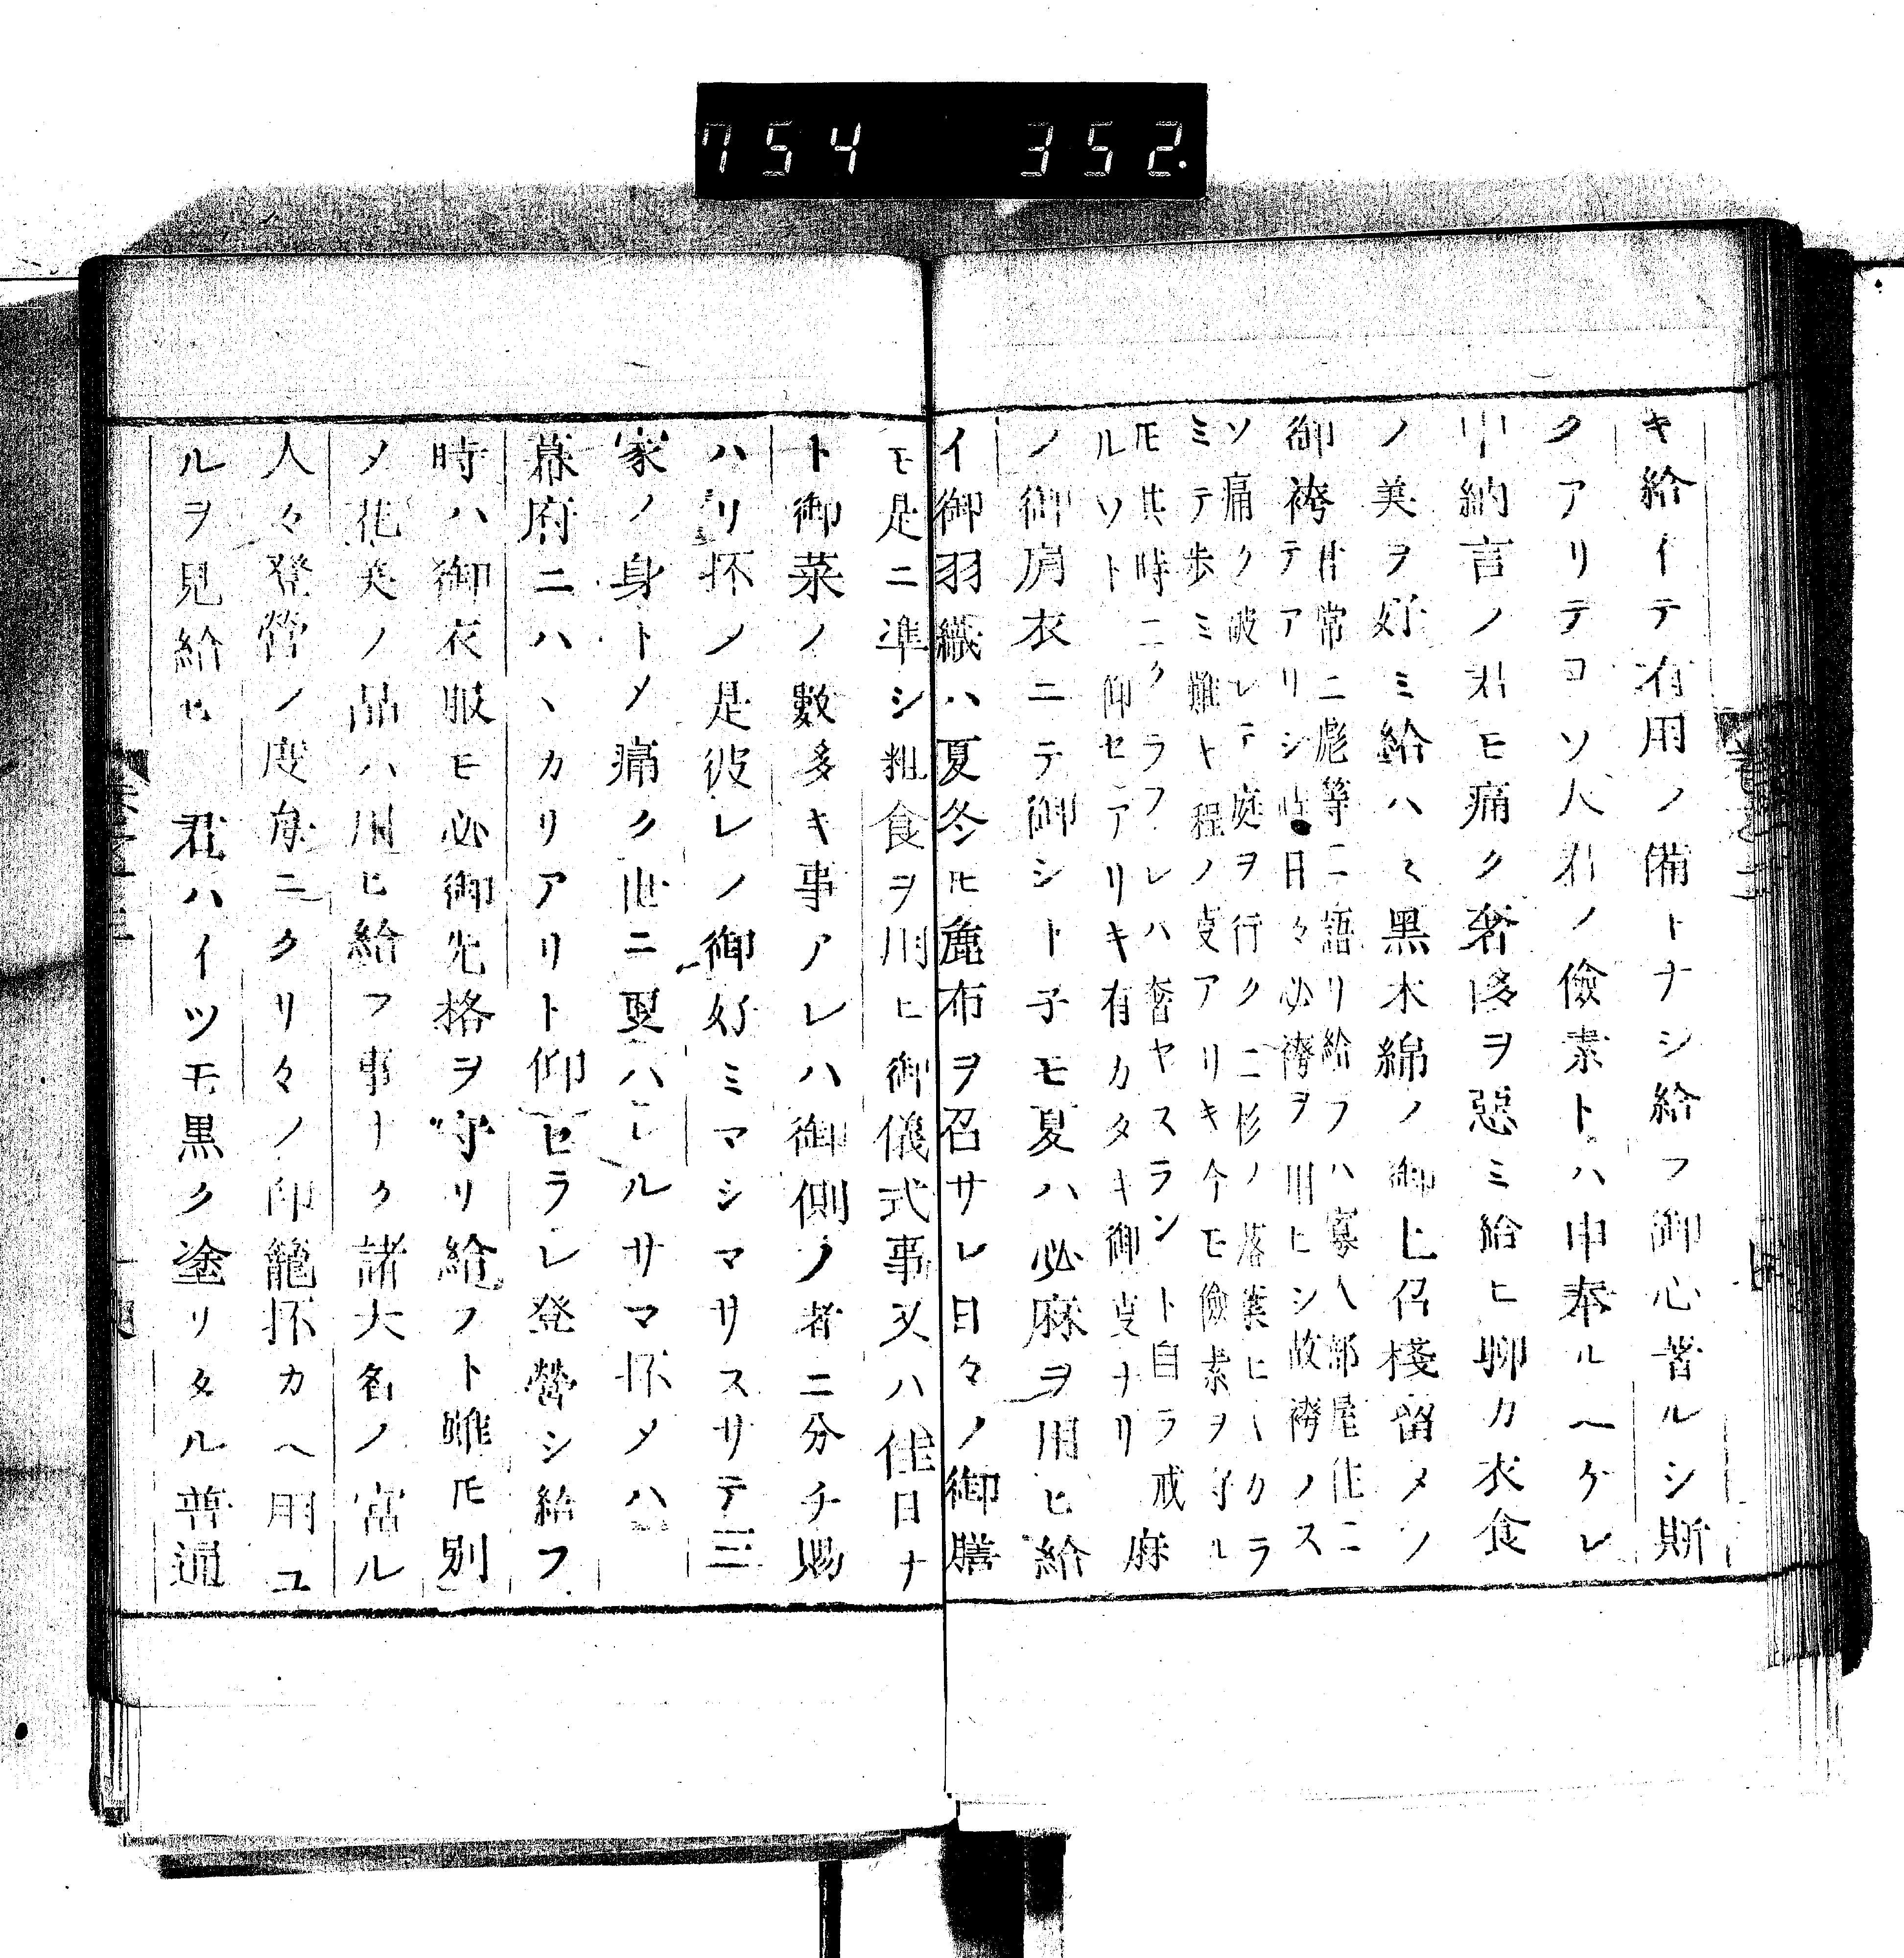 754 352.
キ給イテ有用ノ備トナシ給フ御心著ルシ斯
クアリテコソ人君ノ儉素トハ申奉ルヘケレ
中納言ノ君モ痛ク奢侈ヲ惡ミ給ヒ聊カ衣食
ノ美ヲ好ミ給ハス黒木綿ノ御上召棧留メノ
御袴
常ニ彪等ニ語リ給フハ寡人部屋住ニ
テアリシ時日々必袴ヲ用ヒシ故袴ノス
ソ痛ク破レテ庭ヲ行クニ杉ノ落葉ヒシクラ
ミテ歩ミ難キ程ノ叓アリキ今モ儉素ヲ守ル
モ其時ニクラフレハ奢ヤスラント自ラ戒
ルソト 仰セアリキ有カタキ御叓ナリ
麻
ノ御肩衣ニテ御シト子モ夏ハ必麻ヲ用ヒ給
イ御羽織ハ夏冬ヒ麁布ヲ召サレ日々ノ御膳
モ是ニ準シ粗食ヲ用ヒ御儀式事又ハ佳日ナ
ト御菜ノ數多キ事アレハ御側ノ者ニ分チ賜
ハリ抔ノ是彼レノ御好ミマシマサスサテ三
家ノ身トメ痛ク世ニ異ハレルサマ抔メハ
幕府ニハヽカリアリト仰セラレ登營シ給フ
時ハ御衣服モ必御先格ヲ守リ給フト雖𪜈別
メ花美ノ品ハ用ヒ給フ事ナク諸大名ノ富ル
人々登營ノ度毎ニクリ々ノ印籠抔カヘ用ユ
ルヲ見給ヒ 君ハイツモ黒ク塗リタル普通